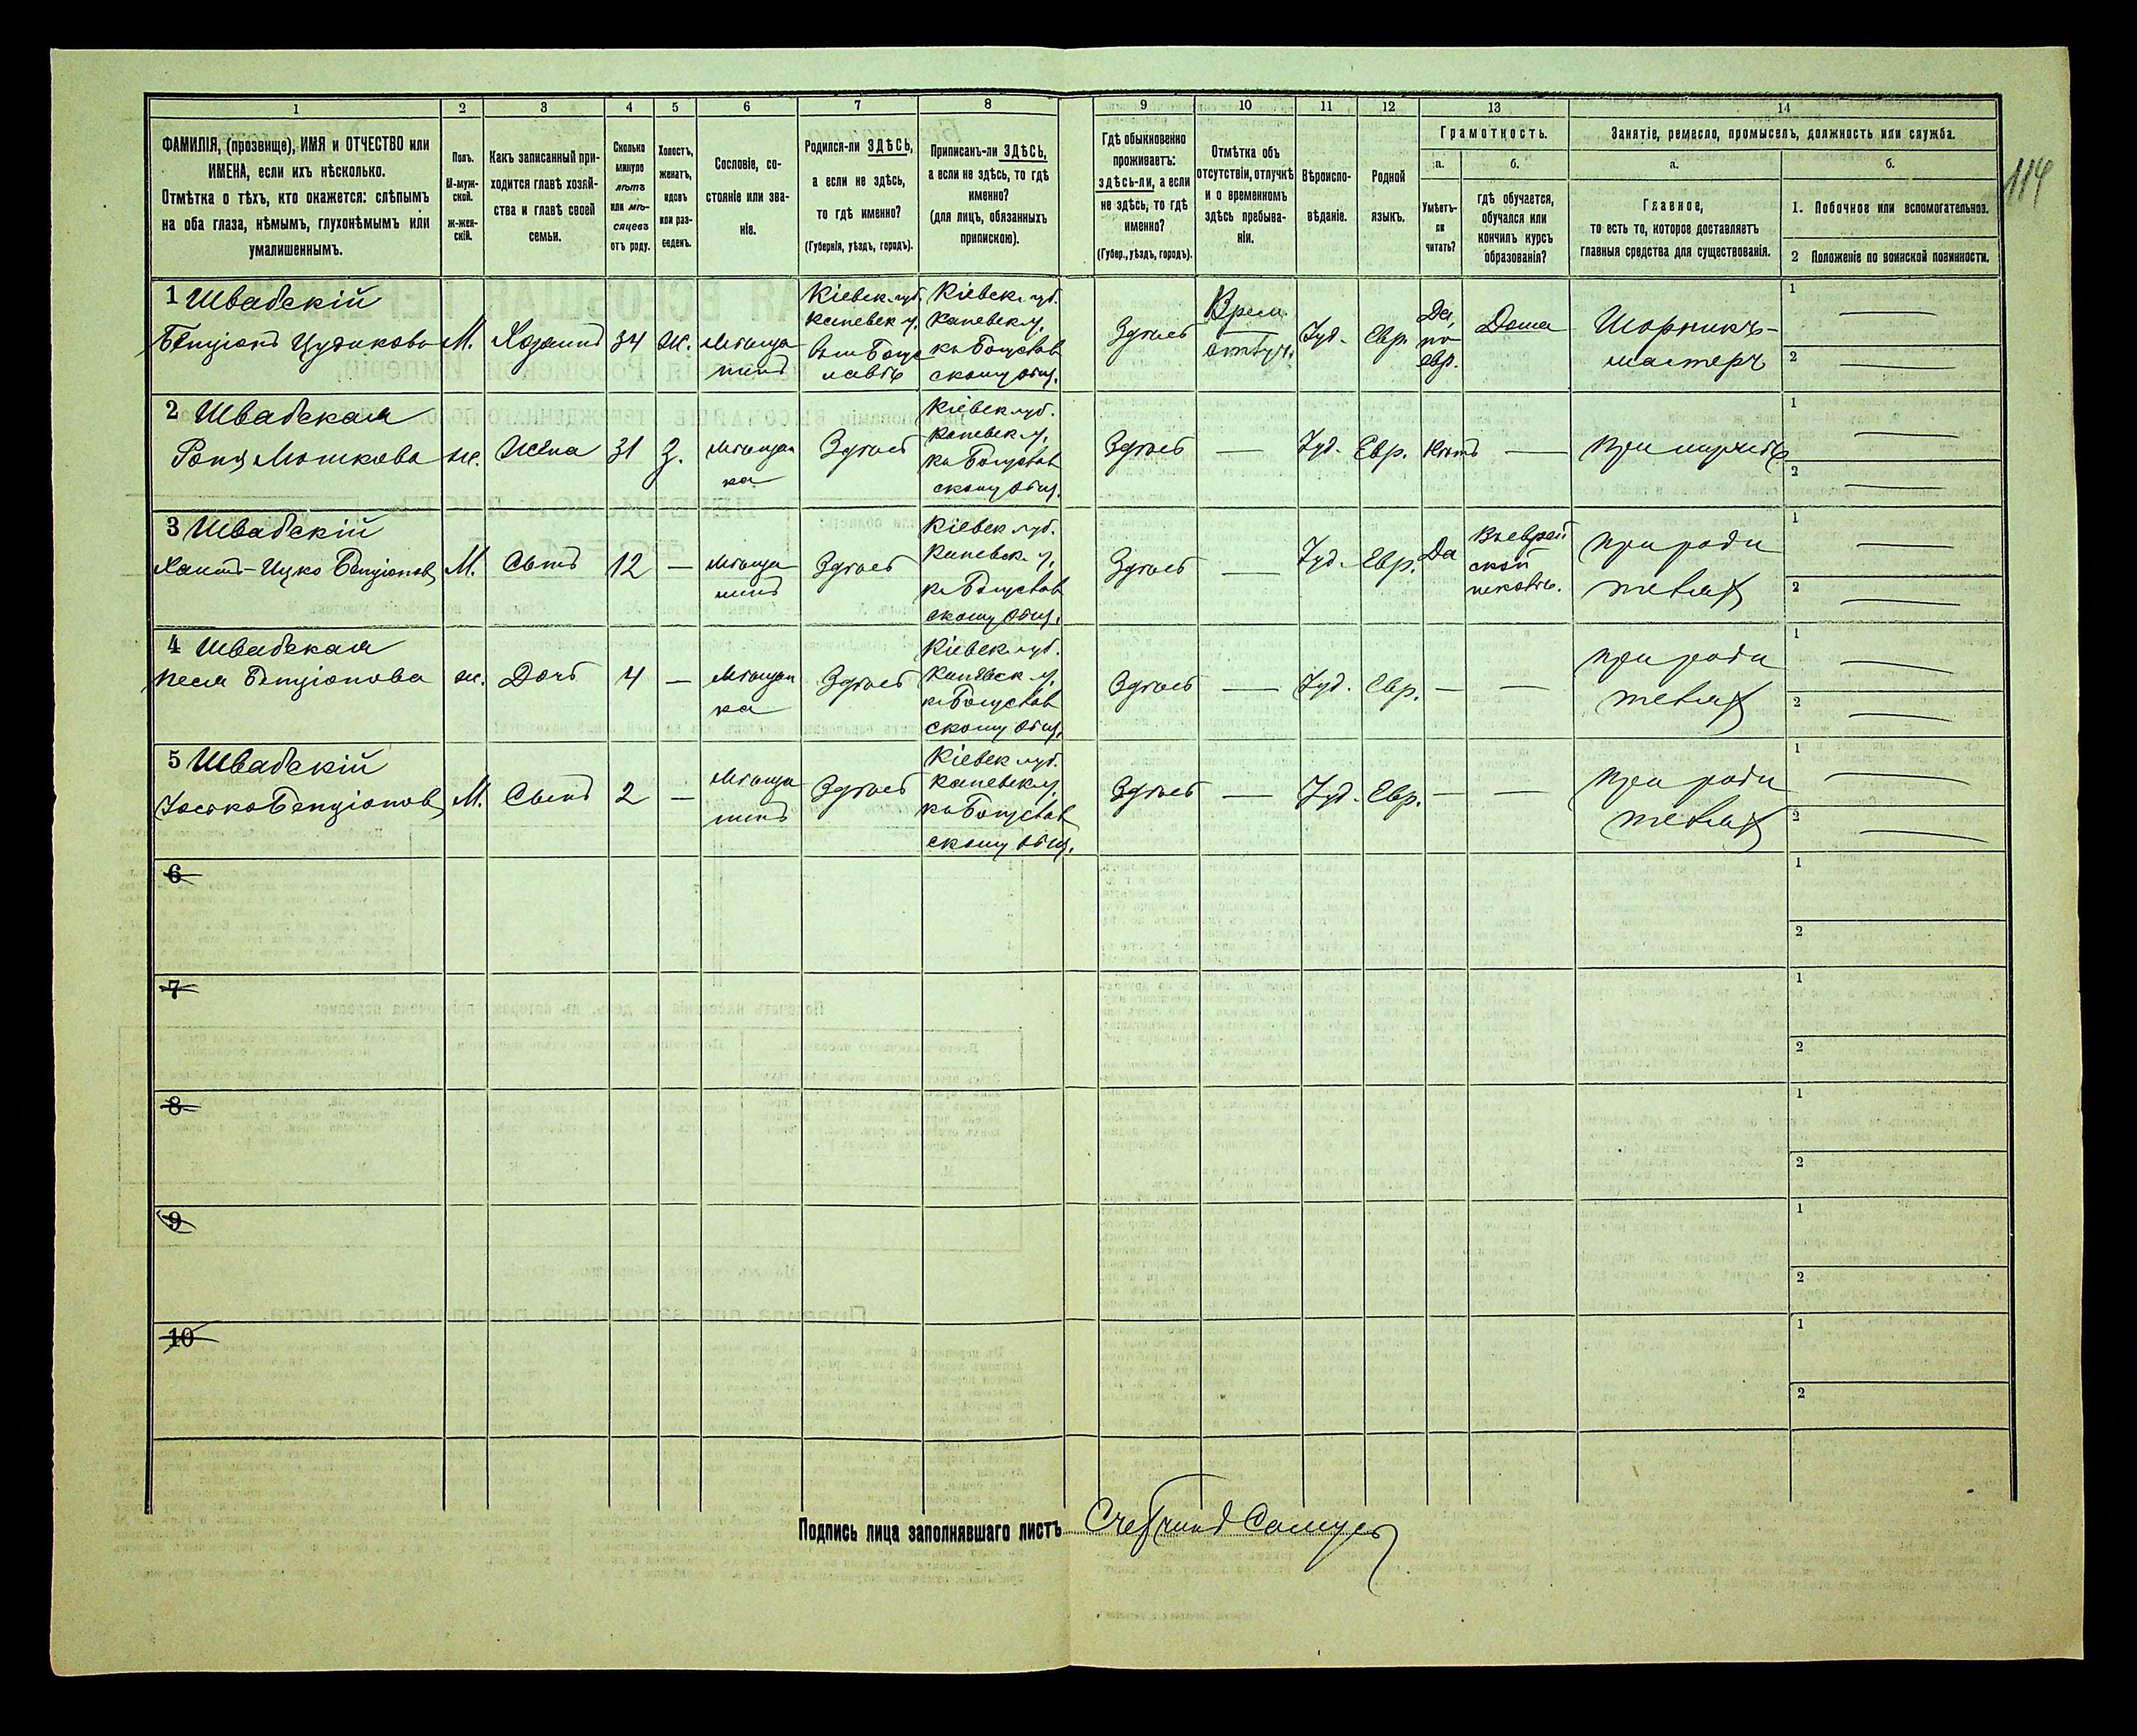 114
1 2 3 4 5 6 7 8 9 10 11 12 13 14
ФАМИЛІЯ, (прозвище), ИМЯ и ОТЧЕСТВО или
ИМЕНА, если ихъ нѣсколько.
Отмѣтка о тѣхъ, кто окажется: слѣпымъ
на оба глаза, нѣмымъ, глухонѣмымъ или
умалишеннымъ.
Полъ.
М-муж-
ской.
ж-жен-
скій.
Какъ записанный при-
ходится главѣ хозяй-
ства и главѣ своей
семьи.
Сколько
минуло
лѣтъ
или мѣ-
сяцевъ
отъ роду.
Холостъ,
женатъ,
вдовъ
или раз-
веденъ.
Сословіе, со-
стояніе или зва-
ніе.
Родился-ли ЗДѢСЬ,
а если не здѣсь,
то гдѣ именно?
(Губернія, уѣздъ, городъ).
Приписанъ-ли ЗДѢСЬ,
а если не здѣсь, то гдѣ
именно?
(для лицъ, обязанныхъ
припискою).
Гдѣ обыкновенно
проживаетъ:
здѣсь-ли, а если
не здѣсь, то гдѣ
именно?
(Губер., уѣздъ, городъ).
Отмѣтка объ
отсутствіи, отлучкѣ
и о временномъ
здѣсь пребыва-
ніи.
Вѣроиспо-
вѣданіе.
Родной
языкъ.
Грамотность.
а.
Умѣетъ-
ли
читать?
б.
гдѣ обучается,
обучался или
кончилъ курсъ
образованія?
Занятіе, ремесло, промыселъ, должность или служба.
а.
Главное,
то есть то, которое доставляетъ
главныя средства для существованія.
б.
1. Побочное или вспомогательное.
2 Положеніе по воинской повинности.
1 Швабскій
Бенціонъ Цудиковъ
М.
Хозяинъ
34
Ж.
Мѣща
нинъ
Кіевск. губ.
Каневск у.
въ м Богу
славѣ
Кіевск. губ.
Каневск у.
къ Богуслав
скому общ.
Здѣсь
Врем.
отлуч.
Іуд.
Евр.
Да,
по
евр.
Дома
Шорникъ-
мастеръ
1
2
2 Швабская
Роня Мошкова
ж.
Жена
31
З.
Мѣщан
ка
Здѣсь
Кіевск губ.
Каневск у.
къ Богуслав
скому общ.
Здѣсь
—
Іуд.
Евр.
Нѣтъ
—
при мужѣ
1
2
3 Швабскій
Хаимъ-Ицко Бенціоновъ
М.
Сынъ
12
—
Мѣща
нинъ
Здѣсь
Кіевск губ.
Каневск. у.
къ Богуслав
скому общ.
Здѣсь
—
Іуд.
Евр.
Да
Въ еврей
ской
школѣ.
при роди
теляхъ
1
2
4 Швабская
Песя Бенціонова
ж.
Дочь
4
—
Мѣщан
ка
Здѣсь
Кіевск губ.
Каневск у.
къ Богуслав
скому общ.
Здѣсь
—
Іуд.
Евр.
—
—
при роди
теляхъ
1
2
5 Швабскій
Іоська Бенціоновъ
М.
Сынъ
2
—
Мѣща
нинъ
Здѣсь
Кіевск губ.
Каневск у.
къ Богуслав
скому общ.
Здѣсь
—
Іуд.
Евр.
—
—
при роди
теляхъ
1
2
6
1
2
7
1
2
8
1
2
9
1
2
10
1
2
Подпись лица заполнявшаго листъ